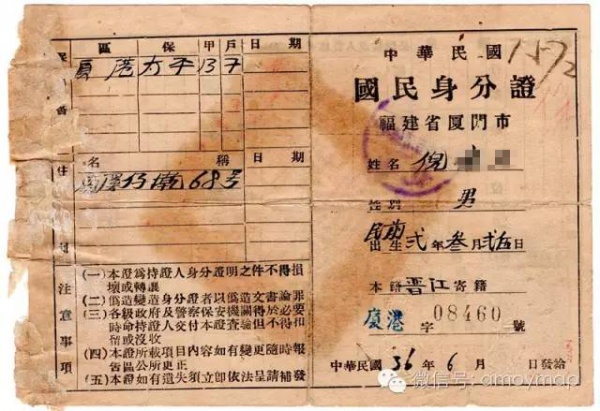 區 保 甲 戶 日 期
厦港 太平 13 7
名 稱 日 期
68号
注意事項
(一)本證爲持證人身分證明之件不得損
壞或轉讓
(二)僞造變造身分證者以僞造文書論罪
(三)各級政府及警察保安機關得於必要
時命持證人交付本證查驗但不得扣
留或沒收
(四)本證所載項目內容如有變更隨時報
請區公所更正
(五)本證如有遺失須立卽依法呈請補發
中華民國
國民身分證
福建省厦門市
姓名 倪
性別 男
出生 民前弍年叁月弍五日
本籍 晋江 寄籍
廈港 字 08460 號
中華民國 36 年 6 月 日發給
微信号: amoymap